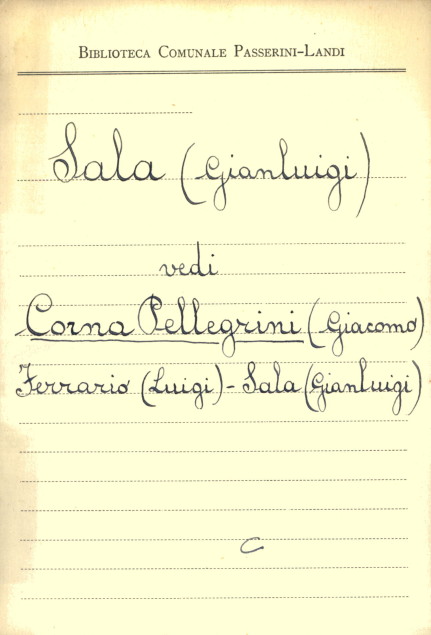 BIBLIOTECA COMUNALE PASSERINI-LANDI
Sala (Gianluigi)
vedi
Corna Pellegrini (Giacomo)
Ferrario (Luigi) - Sala (Gianluigi)
C